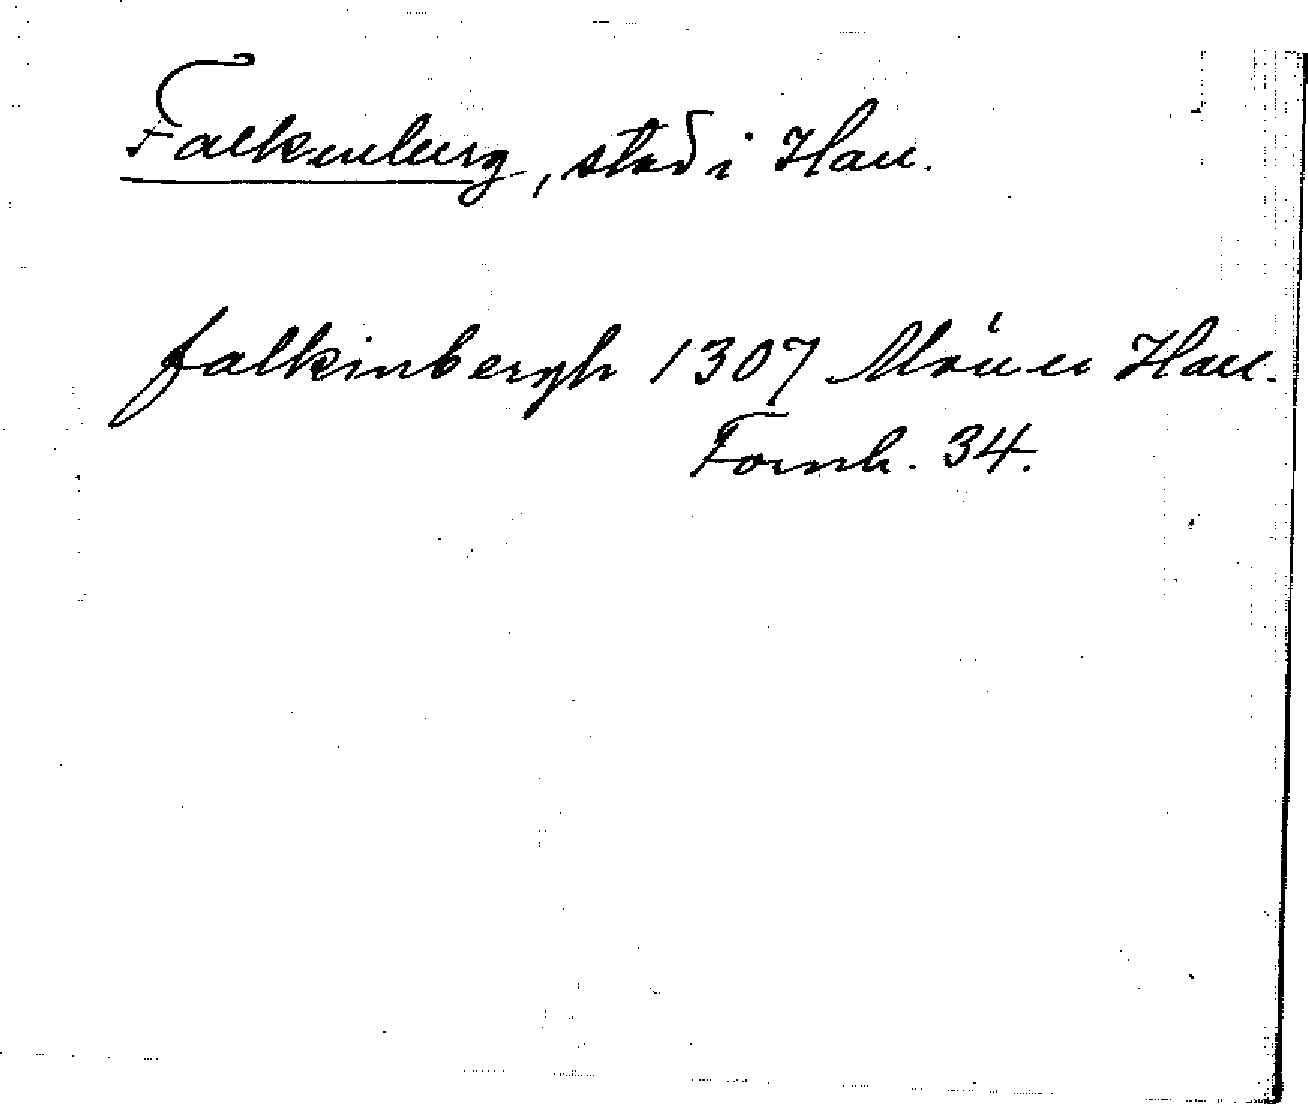 Falkenberg, stad i Hall.
falkinbergh 1307 Hall.
Fornh. 34.